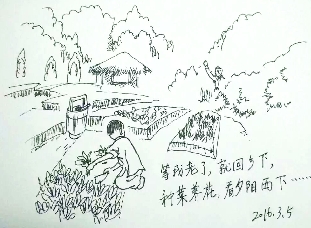 等我老了，就回乡下，
种菜养花、看夕阳西下……
2016.3.5